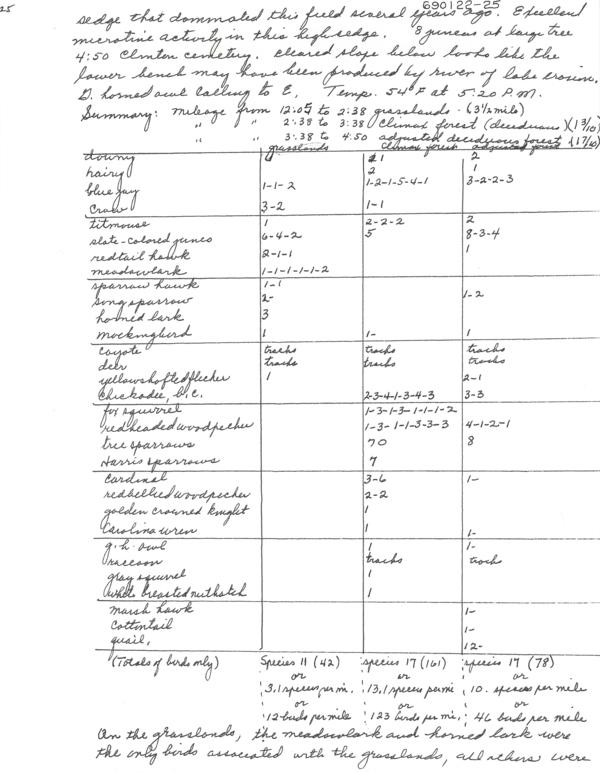 25
690122-25
sedge that dominated this field several years ago. Excellent
microtine activity in this high sedge. 8 juncus at large tree
4:50 Clinton cemetery. Cleared slope below looks like the
lower bench may have been produced by river of lake erosion.
G. horned owl calling to E, Temp. 54° F at 5:20 P.M.
Summary: mileage from 12:05 to 2:38 grasslands - (3½ mile)
" " 2:38 to 3:38 Climax forest (deciduous) (1 3/10)
" " 3:38 to 4:50 adjusted deciduous forest (1 7/10)
grasslands climax forest adjusted forest
downy 1 2
hairy 2 1
blue jay 1-1-2 1-2-1-5-4-1 3-2-2-3
Crow 3-2 1-1
titmouse 1 2-2-2 2
slate-colored junco 6-4-2 5 8-3-4
redtail hawk 2-1-1 1
meadowlark 1-1-1-1-1-2
sparrow hawk 1-1
song sparrow 2- 1-2
horned lark 3
mockingbird 1 1- 1
coyote tracks tracks tracks
deer tracks tracks tracks
yellowshafted flicker 1 2-1
Chickadee, b.c. 2-3-4-1-3-4-3 3-3
fox squirrel 1-3-1-3-1-1-1-2
redheaded woodpecker 1-3-1-1-3-3-3 4-1-2-1
tree sparrows 70 8
Harris sparrows 7
Cardinal 3-6 1-
redbellied woodpecker 2-2
golden crowned kinglet 1
Carolina wren 1 1-
g. h. owl 1 1-
raccoon tracks track
gray squirrel 1
white breasted nuthatch 1
marsh hawk 1-
Cottontail 1-
quail, 12-
(Totals of birds only) Species 11 (42) species 17 (161) species 17 (78)
or or or
3.1 species per mi. 13.1 species per mi 10. species per mile
or or or
12 birds per mile 123 birds per mi. 46 birds per mile
On the grasslands, the meadowlark and horned lark were
the only birds associated with the grasslands, all others were